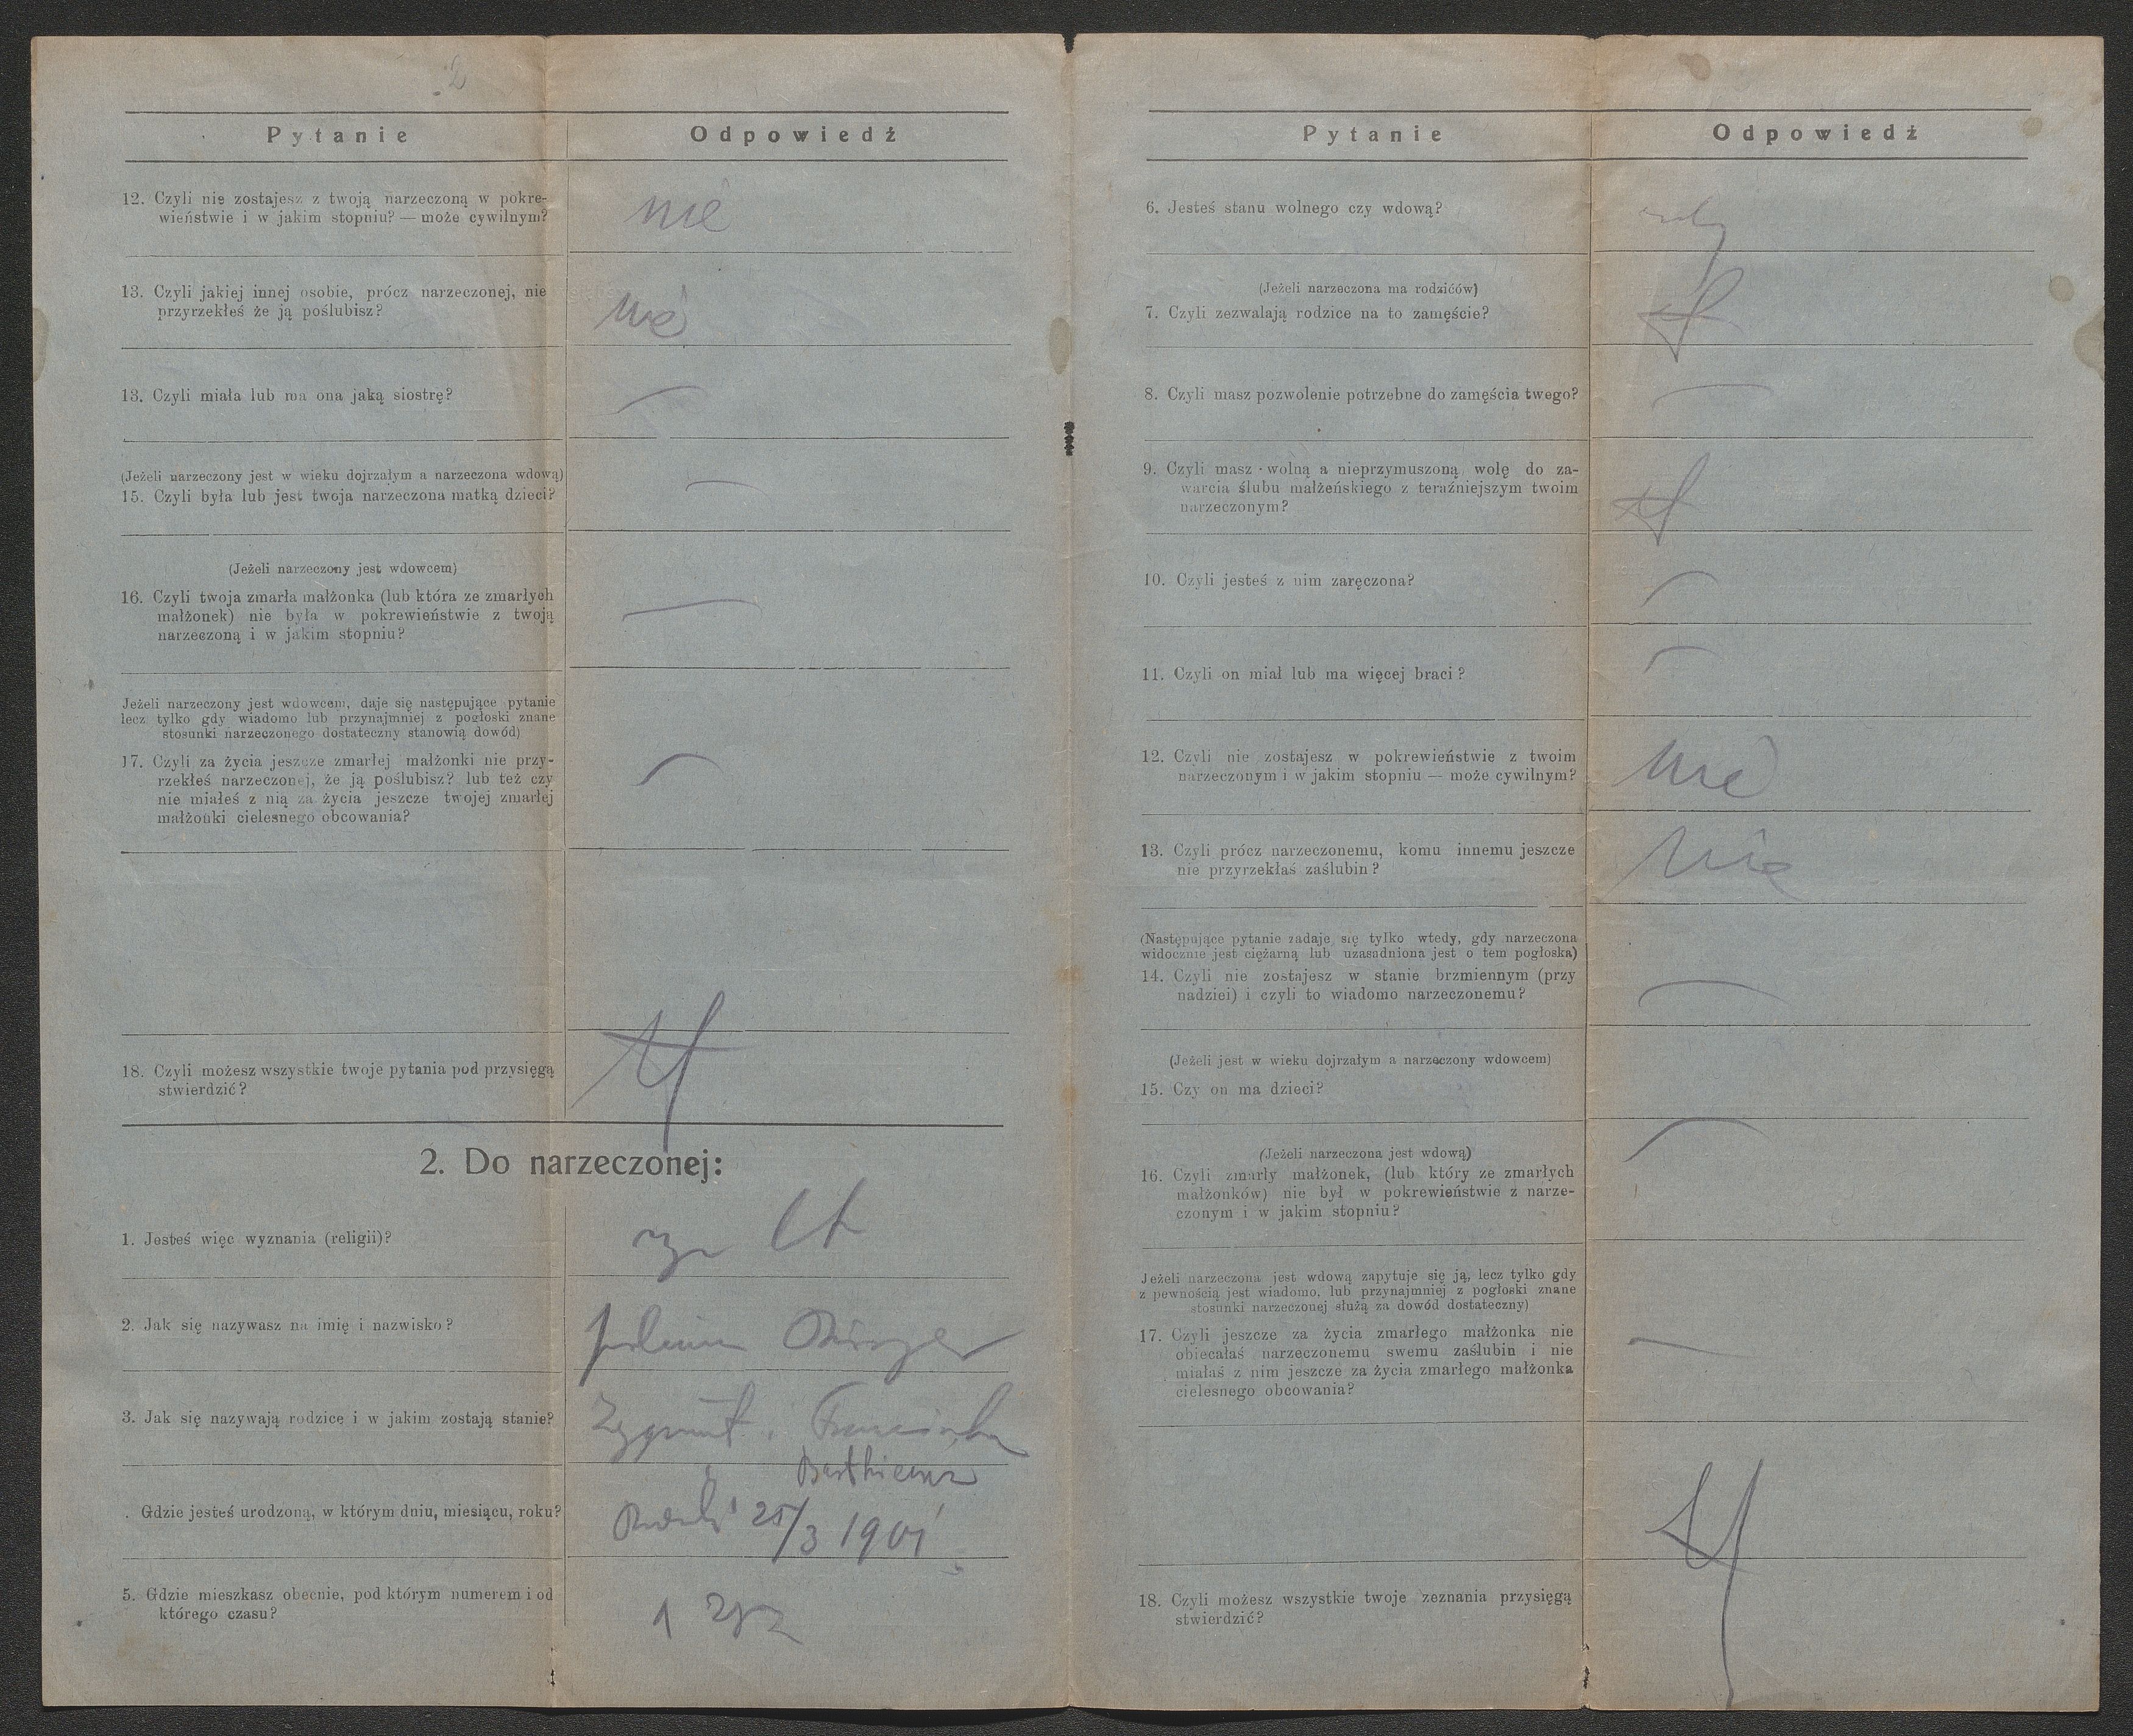 2
Pytanie
Odpowiedź
12. Czyli nie zostajesz z twoją narzeczoną w pokre-
wieństwie i w jakim stopniu? — może cywilnym?
nie
13. Czyli jakiej innej osobie, prócz narzeczonej, nie
przyrzekłeś że ją poślubisz?
nie
13. Czyli miała lub ma ona jaką siostrę?
—
(Jeżeli narzeczony jest w wieku dojrzałym a narzeczona wdową)
15. Czyli była lub jest twoja narzeczona matką dzieci?
—
(Jeżeli narzeczony jest wdowcem)
16. Czyli twoja zmarła małżonka (lub która ze zmarłych
małżonek) nie była w pokrewieństwie z twoją
narzeczoną i w jakim stopniu?
—
Jeżeli narzeczony jest wdowcem, daje się następujące pytanie
lecz tylko gdy wiadomo lub przynajmniej z pogłoski znane
stosunki narzeczonego dostateczny stanowią dowód)
17. Czyli za życia jeszcze zmarłej małżonki nie przy-
rzekłeś narzeczonej, że ją poślubisz? lub też czy
nie miałeś z nią za życia jeszcze twojej zmarłej
małżonki cielesnego obcowania?
—
18. Czyli możesz wszystkie twoje pytania pod przysięgą
stwierdzić?
2. Do narzeczonej:
1. Jesteś więc wyznania (religii)?
2. Jak się nazywasz na imię i nazwisko?
3. Jak się nazywają rodzice i w jakim zostają stanie?
Zygmunt i Franciszka
. Gdzie jesteś urodzoną, w którym dniu, miesiącu, roku?
25/3 1901
5. Gdzie mieszkasz obecnie, pod którym numerem i od
którego czasu?
Pytanie
Odpowiedź
6. Jesteś stanu wolnego czy wdową?
(Jeżeli narzeczona ma rodzićów)
7. Czyli zezwalają rodzice na to zamęście?
8. Czyli masz pozwolenie potrzebne do zamęścia twego?
—
9. Czyli masz wolną a nieprzymuszoną wolę do za-
warcia ślubu małżeńskiego z teraźniejszym twoim
narzeczonym?
10. Czyli jesteś z nim zaręczona?
—
11. Czyli on miał lub ma więcej braci?
—
12. Czyli nie zostajesz w pokrewieństwie z twoim
narzeczonym i w jakim stopniu — może cywilnym?
nie
13. Czyli prócz narzeczonemu, komu innemu jeszcze
nie przyrzekłaś zaślubin?
nie
(Następujące pytanie zadaje się tylko wtedy, gdy narzeczona
widocznie jest ciężarną lub uzasadniona jest o tem pogłoska)
14. Czyli nie zostajesz w stanie brzmiennym (przy
nadziei) i czyli to wiadomo narzeczonemu?
—
(Jeżeli jest w wieku dojrzałym a narzeczony wdowcem)
15. Czy on ma dzieci?
(Jeżeli narzeczona jest wdową)
16. Czyli zmarły małżonek, (lub który ze zmarłych
małżonków) nie był w pokrewieństwie z narze-
czonym i w jakim stopniu?
—
Jeżeli narzeczona jest wdową zapytuje się ją, lecz tylko gdy
z pewnością jest wiadomo, lub przynajmniej z pogłoski znane
stosunki narzeczonej służą za dowód dostateczny)
17. Czyli jeszcze za życia zmarłego małżonka nie
obiecałaś narzeczonemu swemu zaślubin i nie
miałaś z nim jeszcze za życia zmarłego małżonka
cielesnego obcowania?
—
18. Czyli możesz wszystkie twoje zeznania przysięgą
stwierdzić?